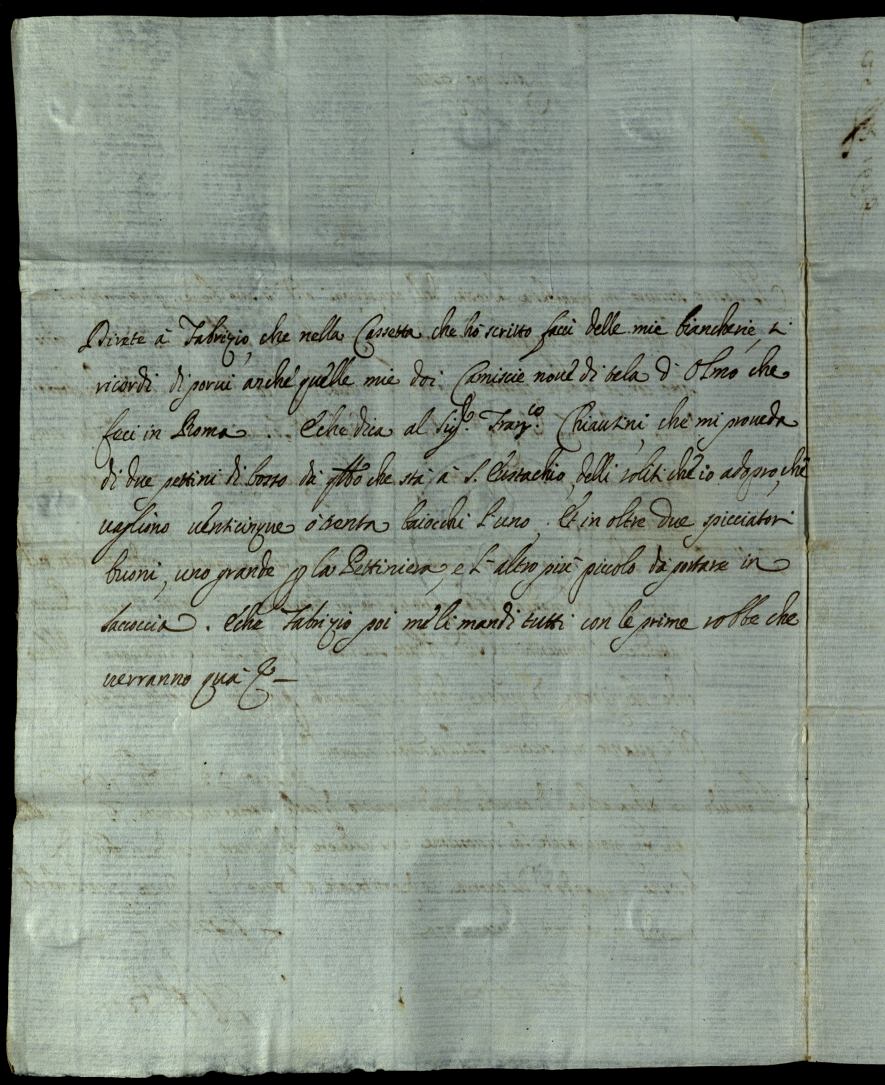 Direte à Fabrizio, che nella Cassetta che hò scritto facci delle mie biancherie, si
ricordi di porui anche quelle mie doi Camiscie noue di tela d'Olmo che
feci in Roma. E che dica al Sig.r Fran.co Chiautini, che mi proueda
di due pettini di bosso da q̃llo che stà à S. Eustachio, delli soliti che io adopro, che
uagliono uenticinque ò trenta baiocchi l'uno, Et in oltre due spicciatori
buoni, uno grande p la Pettiniera, e l'altro più piccolo da portare in
saccoccia. E che Fabrizio poi me li mandi tutti con le prime robbe che
uerranno quà &c—